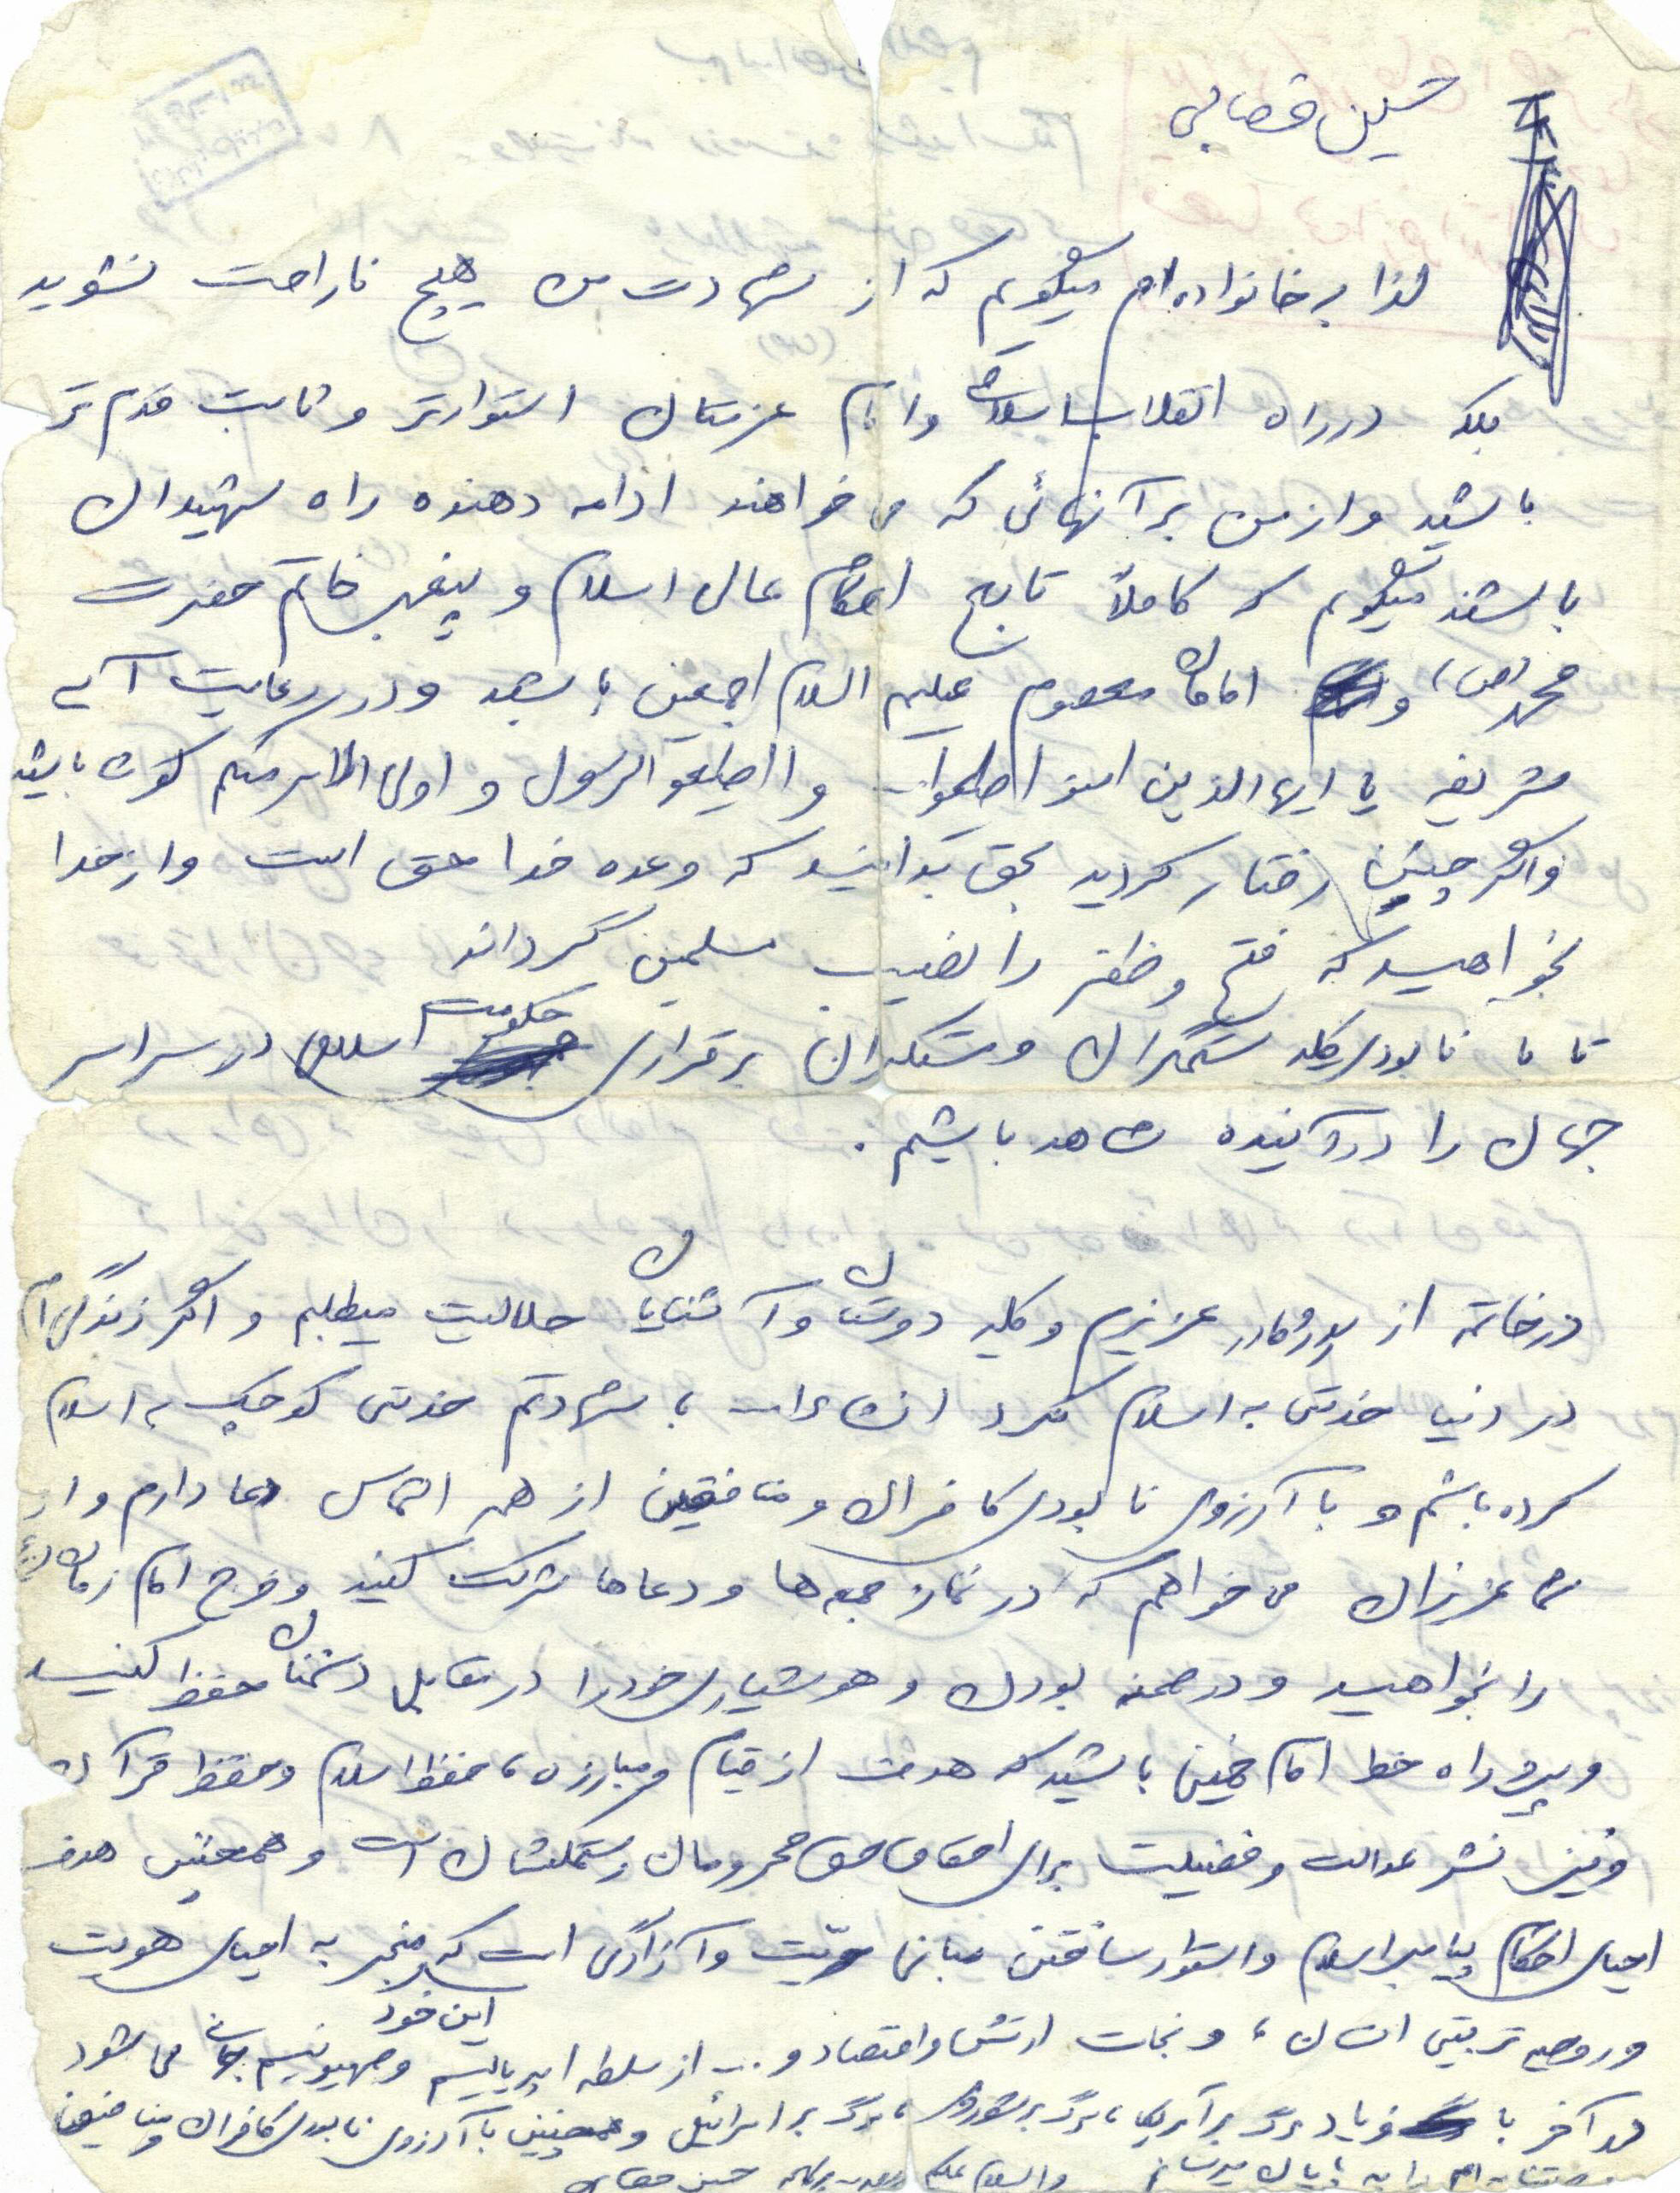 حسین قصابی
لذا به خانواده ام میگویم که از شهادت من هیچ ناراحت نشوید
بلکه در راه انقلاب اسلامی و امام عزمتان استوارتر و ثابت قدم تر
باشید و از من بر آنهائی که می خواهند ادامه دهنده راه شهیدان
باشند میگویم که کاملاً تابع احکام عالی اسلام و پیغمبر خاتم حضرت
محمد (ص) و امامان معصوم علیهم السلام اجمعین باشید و در رعایت آیه
شریفه یا ایها الذین امنو اطیعوا... و اطیعو الرسول و اولی الامر منکم کوشا باشید
و اگر چنین رفتار کردید بحق بدانید که وعده خدا حق است و از خدا
بخواهید که فتح و ظفر را نصیب مسلمین گرداند
تا با نابودی کلیه ستمگران و مستکبران برقراری حکومت اسلامی در سراسر
جهان را در آینده شاهد باشیم .
در خاتمه از پدر و مادر عزیزم و کلیه دوستان و آشنایان حلالیت میطلبم و اگر زندگی ام
در دنیا خدمتی به اسلام نکرد انشاءا... با شهادتم خدمتی کوچک به اسلام
کرده باشم و با آرزوی نابودی کافران و منافقین از همه التماس دعا دارم و از
شما عزیزان می خواهم که در نماز جمعه ها و دعاها شرکت کنید و فرج امام زمان
را بخواهید و در صحنه بودن و هوشیاری خود را در مقابل دشمنان حفظ کنید
و پیرو راه خط امام خمینی باشید که هدف از قیام و مبارزه ، حفظ اسلام و حفظ قرآن
و نیز نشر عدالت و فضیلت برای احقاق حق محرومان و ستمکشان است و همچنین هدف
احیای احکام پیامبر اسلام و استوار ساختن مبانی حریت و آزادگی است که منجر به احیای هویت
و روحیه تربیتی انسان ، و نجات ارتش و اقتصاد و ... از سلطه امپریالیسم و صهیونیسم این خود می شود
در آخر با فریاد مرگ بر آمریکا ، مرگ بر شوروی ، مرگ بر اسرائیل و همچنین با آرزوی نابودی کافران و منافقین
را به پایان میرسانم والسلام علیکم و برکاته حسین قصابی